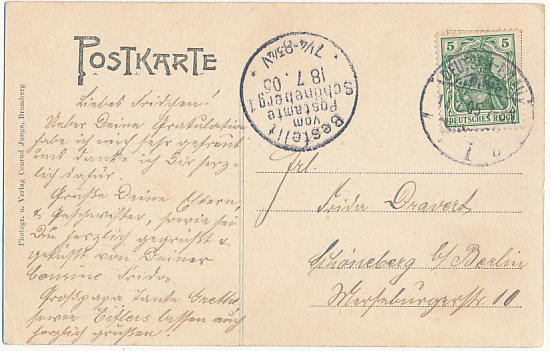 POSTKARTE
Liebes Fridchen!
Ueber Deine Gratulation
habe ich mich sehr gefreut
und danke ich Dir herz-
lich dafür.
Grüße Deine Eltern,
& Geschwister, sowie sei
Du herzlich gegrüßt &
geküsst von Deiner
Cousine Frida.
Großpapa Tante Grethe
sowie Eitlers lassen auch
herzlich grüssen!
Photogr. u. Verlag Conrad Junga, Bromberg
Bestellt
vom
Postamte
Schöneberg 1
18 7. 05
7¼-8¾V
5 5
DEUTSCHES REICH
Frl.
Frida Dravert
Schöneberg b/Berlin
Merseburgerstr. 10